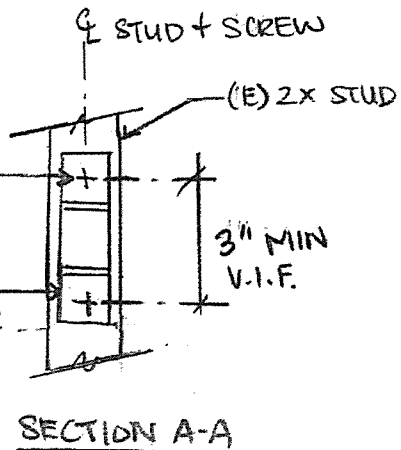 ℄ STUD + SCREW
(E) 2X STUD
3" MIN
V.I.F.
SECTION A-A